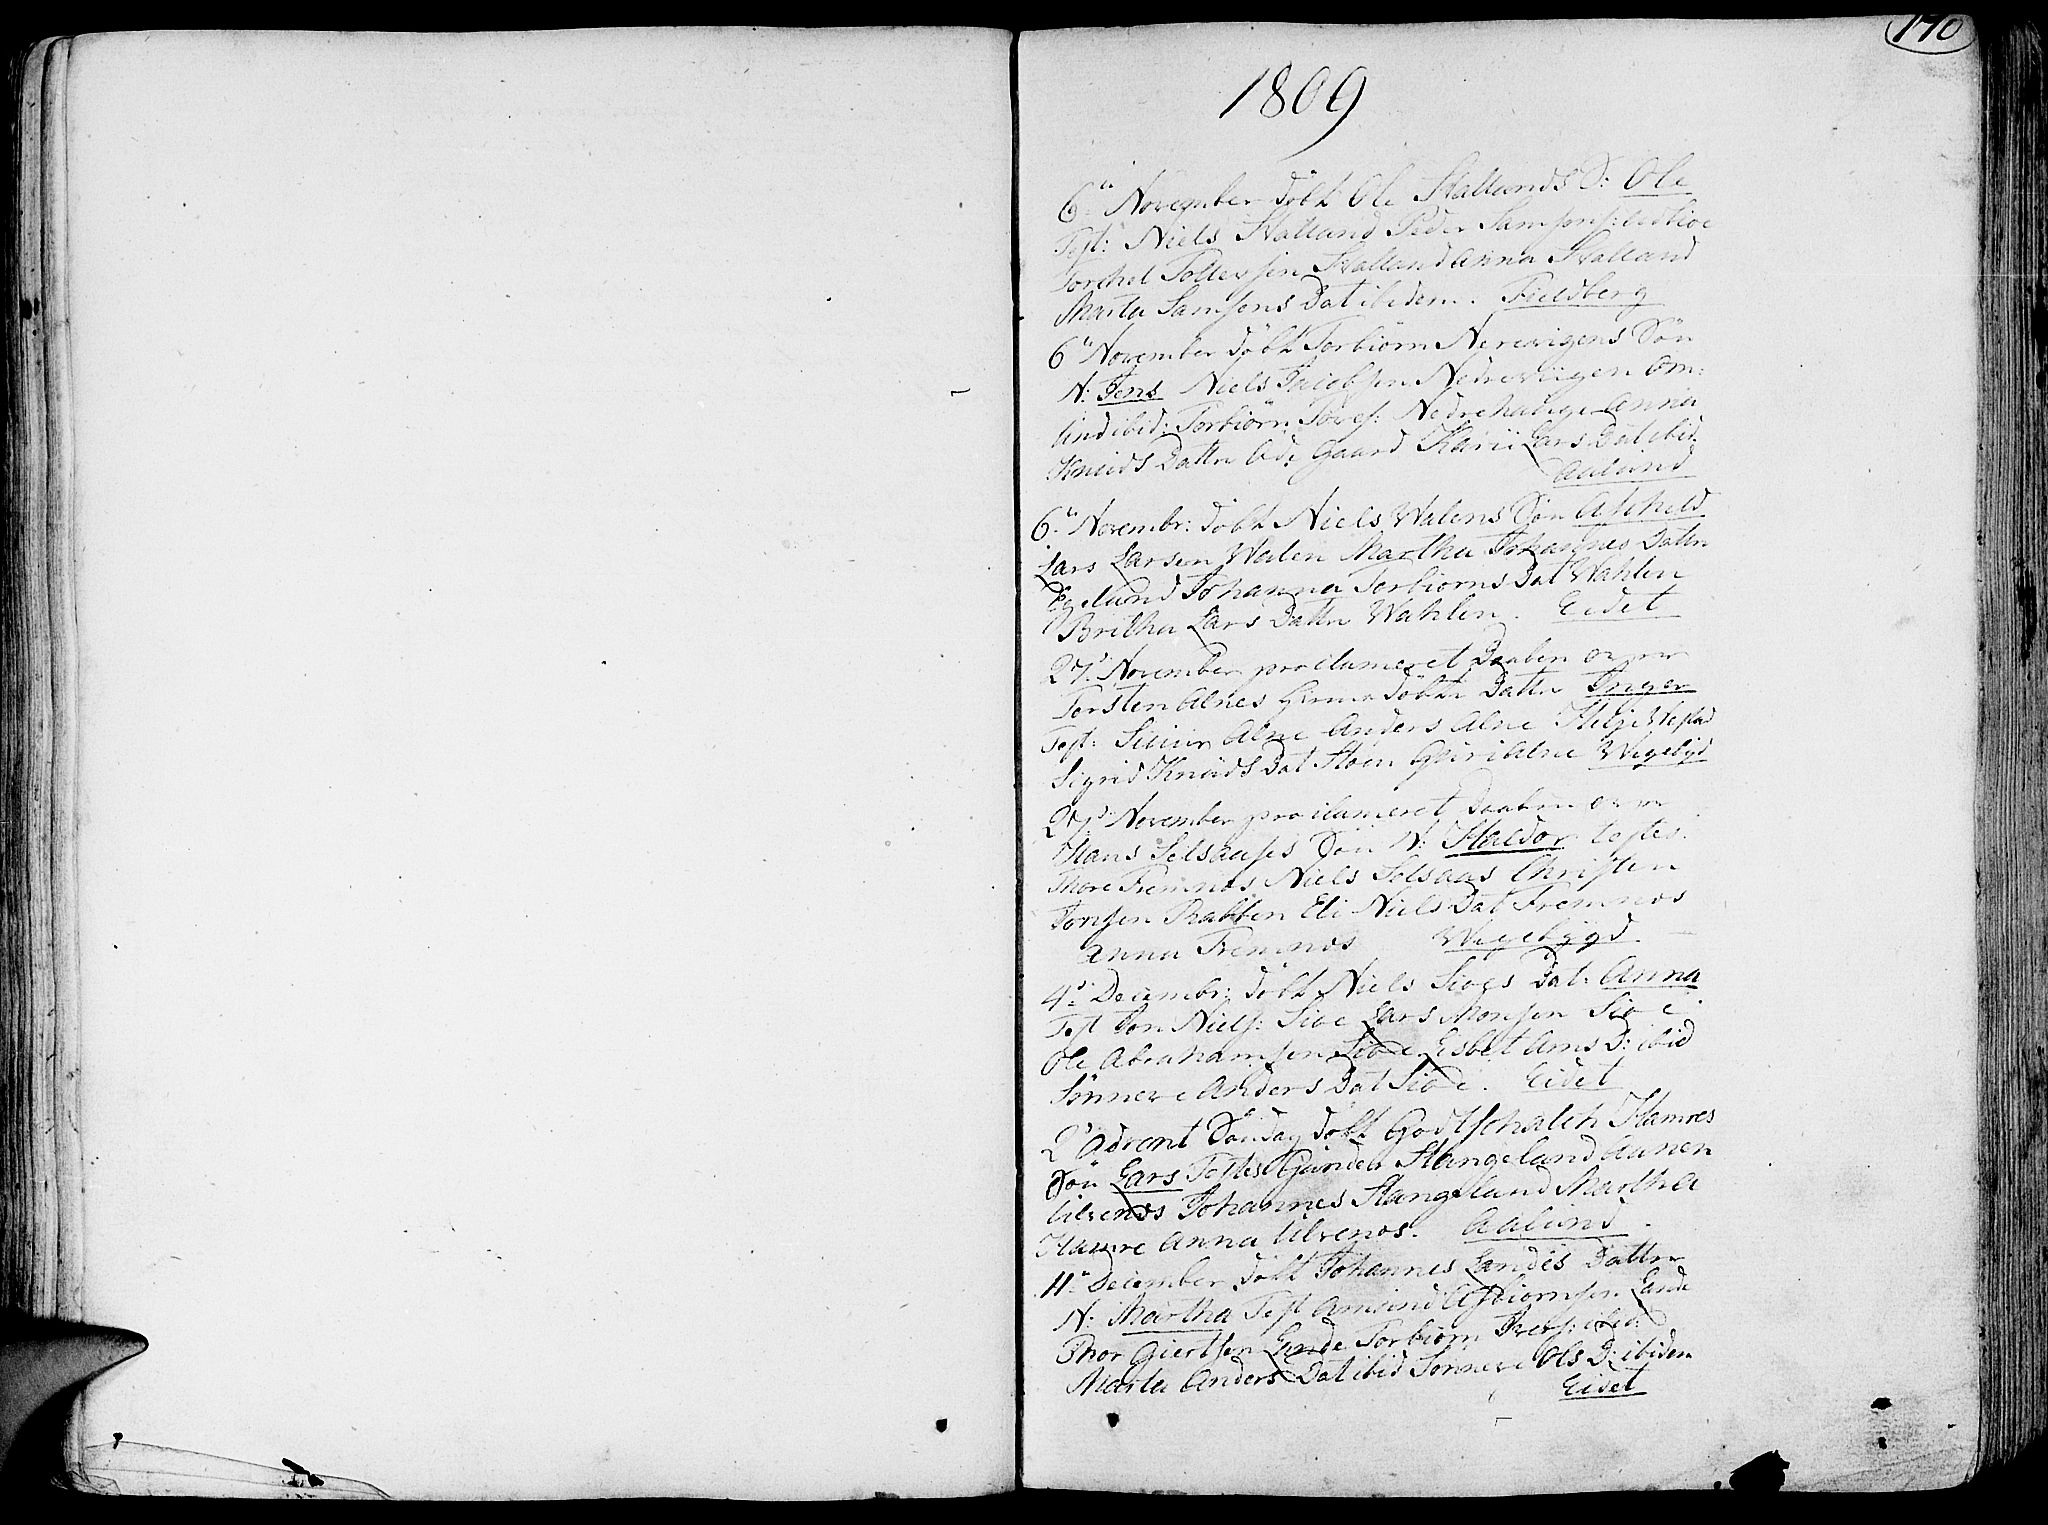 170
1809
6te November döbt Ole Hallands S: Ole
Test: Niels Halland Peder Samsons:
Torchel Tollevsen Halland Anna Halland
Marta Samsons Dat ibidem. Fieldberg
6te November döbt Torbiörn Nerevigens Sön
N: Jens Niels Jacobsen Nedreviigen Om-
und ibid: Torbiörn Tores: Nedrehauge Anna
Knuds Dattr Ode Gaard Karii Lars Dat ibid.
Aalund
6te Novembr: döbt Niels Walens Sön Askild
Lars Larsen Walen Martha Johannes Dattr
Egeland Johanna Torbiorns Dat Wahlen
Britha Lars Dattr Wahlen. Eidet
27d November proclameret Daaben over
Torsten Alnes hiemedöbte Dattr Inger
Test: Siuur Alne Anders Alne Helje
Sigrid Knuds Dat Hoen Guri Alne Wigebÿd
27d November proclameret Daaben over
Hans Selsaases Sön N: Haldor testes:
Thore Fremnos Niels Solsaas Christen
Jonsen Rabben Eli Niels Dat Fremnos
Anna Fremnos Wigebÿgd.
4d Decembr: döbt Niels Sioes Dat. Anna
Test Jon Niels: Sioe Lars Monsen Sioe
Ole Abrahamsen Sioe Elsbet Ams D: ibid
Sönneve Anders Dat Sioe. Eidet
2d Advent Söndag döbt Godtschalch Hamres
Sön Lars Testes Gunder Hangeland Aanen
Ulvenos Johannes Hangeland Martha
Hamre Anna Ulvenos. Aalund.
11te December döbt Johannes Landes Dattr
N: Martha Test Amund Asbiornsen Lande
Thor Giertsen Lande Torbiörn ibid:
Marta Anders Dat ibid Sönneve Ols D: ibidem
Eidet